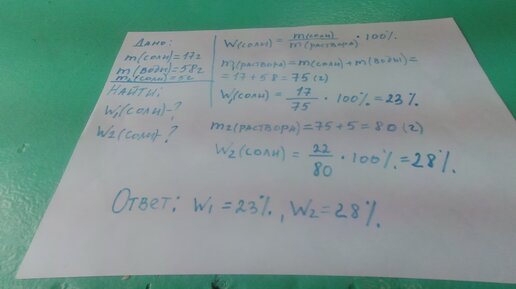 Дано:
m(соли)=17г
m(воды)=58г
m2(соли)=5г
Найти:
W1(соли)-?
W2(соли)-?
W(соли) = m(соли) / m(раствора) · 100%
m1(раствора)=m(соли)+m(воды)=
=17+58=75(г)
W1(соли) = 17/75 · 100% = 23%
m2(раствора)=75+5=80(г)
W2(соли) = 22/80 · 100% = 28%
Ответ: W1=23%, W2=28%.